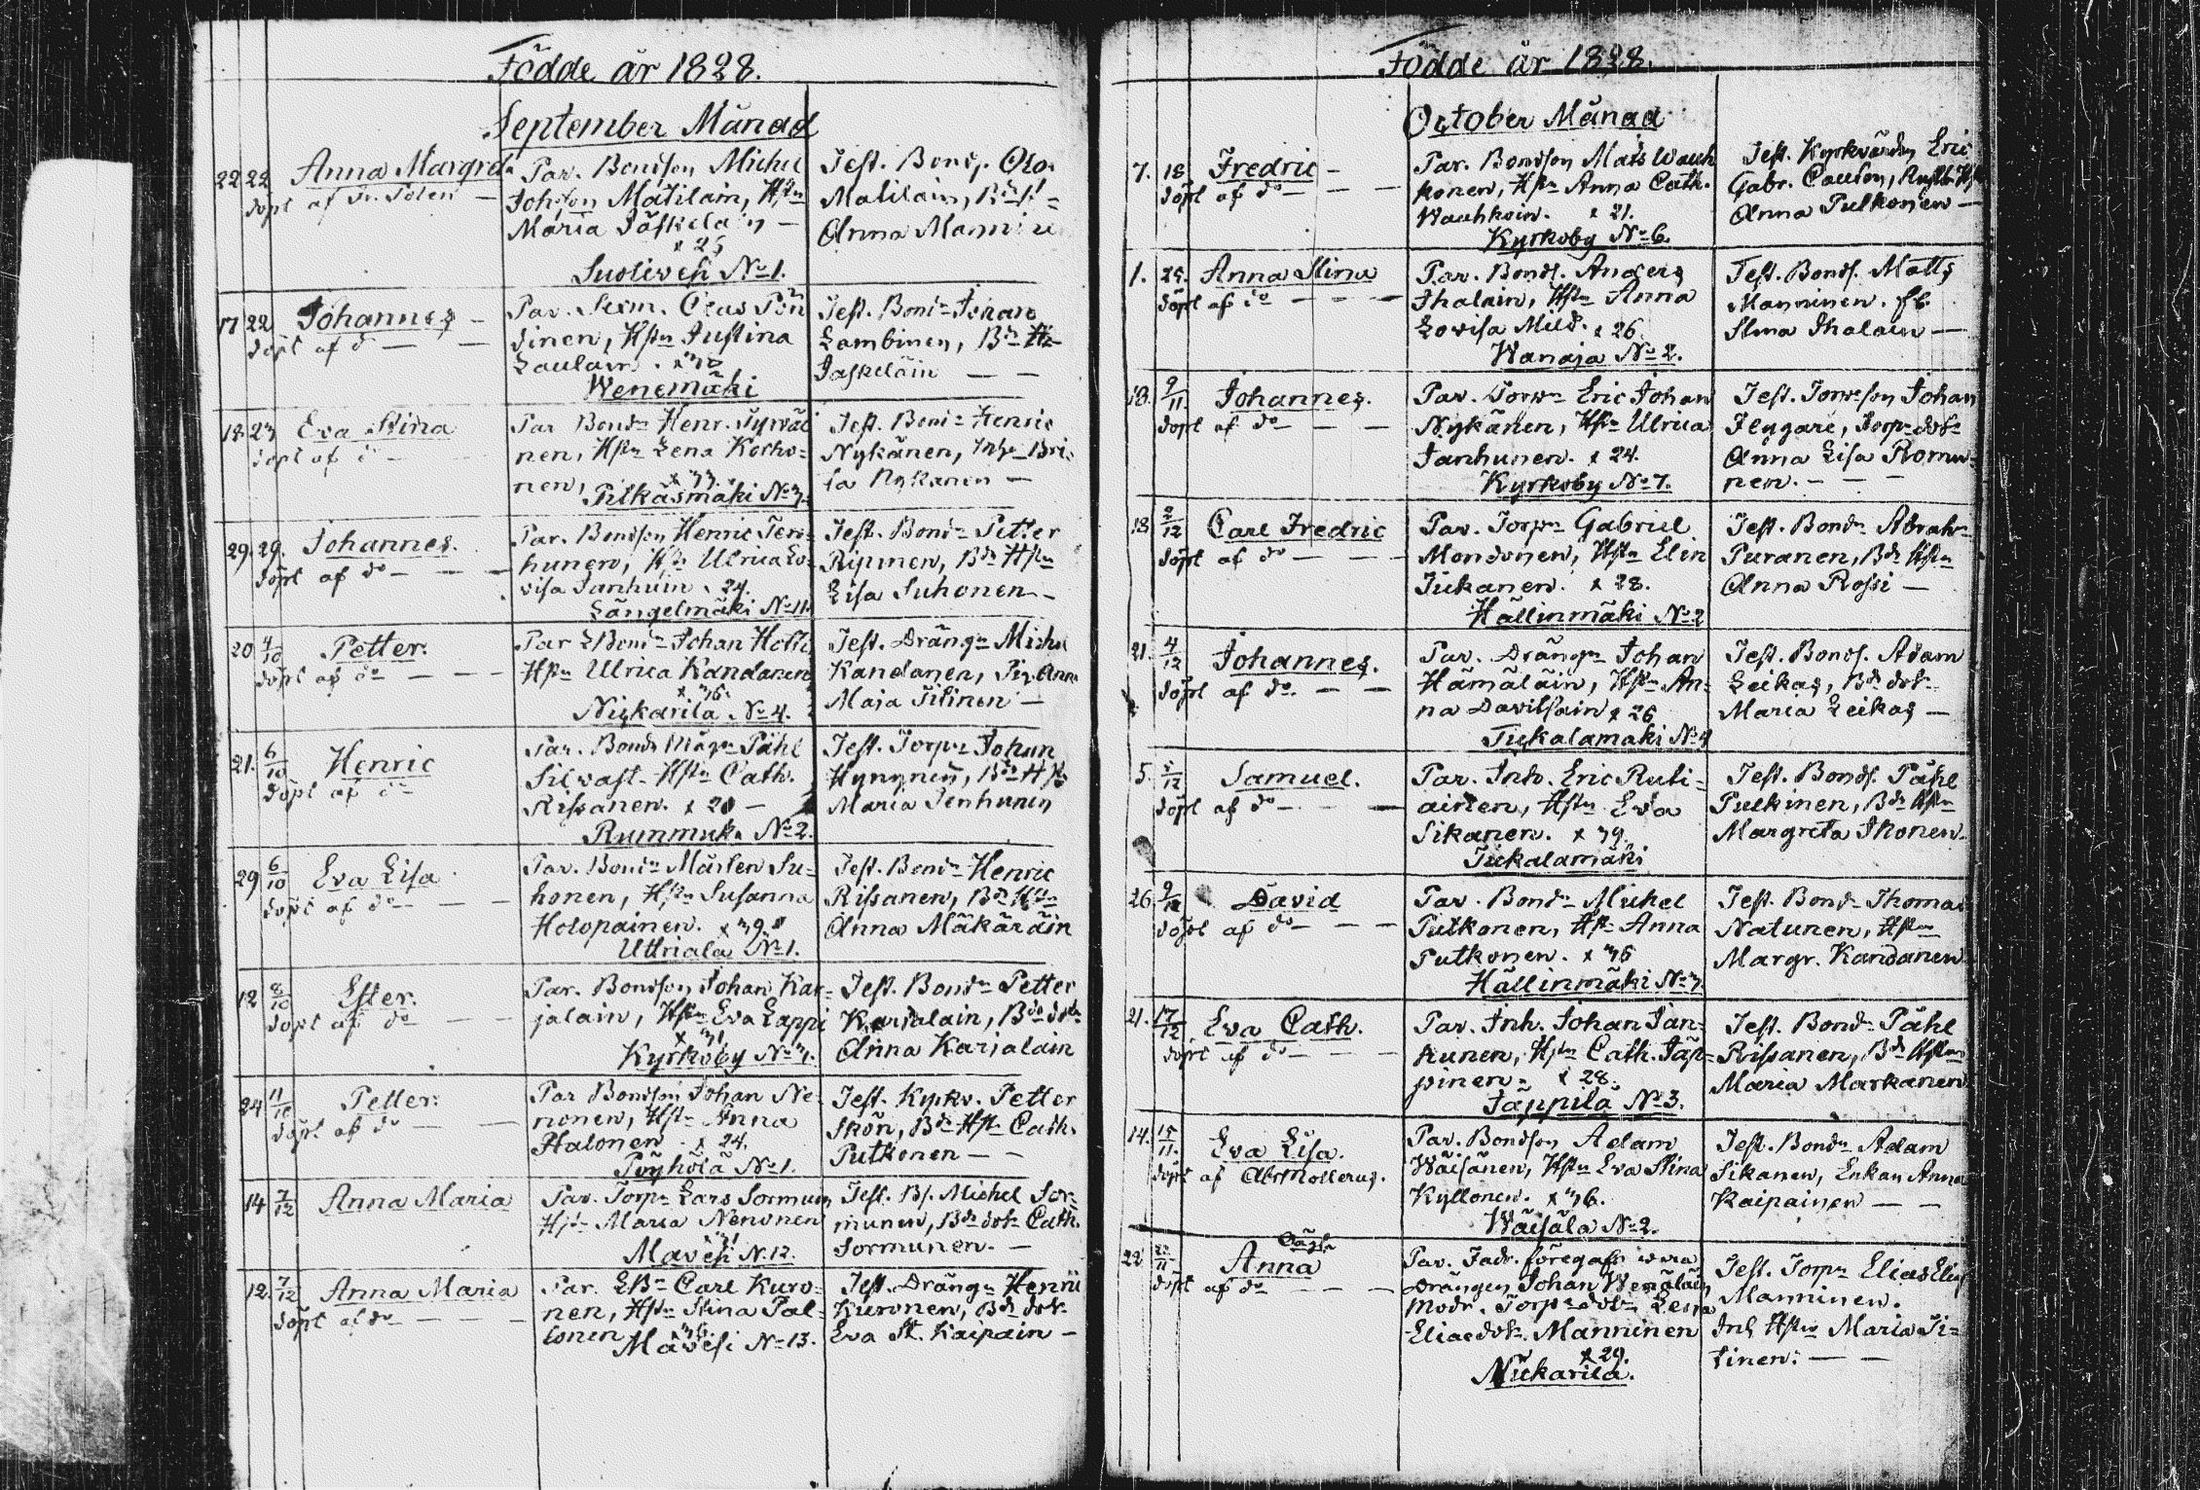 Födde år 1828.
September Månad
22 22 Anna Margrd
döpt af
Par. Bondson Michel
Johsson Matilain, Hstr
Maria Jäskelain
x 25
Suotivesi No 1.
Test. Bonds. Olo.
Matilain,
Anna Mannine
17 22 Johannes
döpt af do
Par. Sexm. Olaus Pön
dinen, Hstr Justina
Laulain.
Wenemäki
Test. Bond Johan
Lambinen, Bd H
Jaskeläin
18 23 Eva Stina
döpt af do
Par Bond Henr. Tyrväi
nen, Hstr Lena Korho-
nen,
Pitkäsmäki No 3.
Test. Bond Henric
Nykänen, Inh Bri
ta Nykänen
29. 29. Johannes.
döpt af do
Par. Bondson Henric Ten
hunen, Hstr Ulrica Lo-
visa Janhuin x 24.
Längelmäki No 11.
Test. Bond Petter
Rijnnen, Bd Hstr
Lisa Suhonen
20 4/10 Petter.
döpt af do
Par LBond Johan Hott
Hstr Ulrica Kandanen
x 36.
Niskarila No 4.
Test. Drängn Michel
Kandanen, Pig. Anna
Maja Titinen
21. 6/10 Henric
döpt af do
Par. Bonds Mågn Påhl
Silvast. Hstr Cath.
Rissanen. x 20
Rummuka No 2.
Test. Torpr Johan
Hynynen, Bd Hstr
Maria Tenhunen
29 6/10 Eva Lisa
döpt af do
Par. Bond Mårten Su-
honen, Hstr Susanna
Holopainen. x 39
Uttriala No 1.
Test. Bond Henric
Rissanen, Bd Hstr
Anna Mäkäräin
12 8/10 Ester.
döpt af do
Par. Bondson Johan Kar-
jalain, Hstr Eva Lappi
x 31
Kyrkoby No 3.
Test. Bond Petter
Karjalain, Bde dotr
Anna Karjalain
24 11/10 Petter.
döpt af do
Par Bondson Johan Ne
nonen, Hstr Anna
Halonen x 24.
Pöyhölä No 1.
Test. Kyrkv. Petter
Skön, Bd Hstr Cath.
Putkonen
14 7/12 Anna Maria
Par. Torpr Lars Sormun
Hstr Maria Nenonen
31
Mavesi N. 12.
Test. Bs. Michel Sor-
munen, Bde dotr Cath.
Sormunen.
12. 7/12 Anna Maria
döpt af do
Par. LBr Carl Kuro-
nen, Hstr Stina Pal-
tonen x 36.
Mavesi No 13.
Test. Drängn Henric
Kuronen, Bd dotr
Eva St. Kaipain
Födde år 1828.
October Månad
7. 18. Fredric
döpt af do
Par. Bondson Mats Wauh
konen, Hstr Anna Cath.
Wauhkoin. x 21.
Kyrkoby No 6.
Test. Kyrkvärden Eric
Gabr. Paulson,
Anna Pulkonen
1. 25. Anna Stina
döpt af do
Par. Bonds. Anders
Ihalain, Hstr Anna
Lovisa Mild. x 26.
Wanaja No 2.
Test. Bonds. Matts
Manninen.
Stina Ihalain
18. 9/11. Johannes.
döpt af do
Par. Torpr Eric Johan
Nykänen, Hstr Ulrica
Janhunen. x 24.
Kyrkoby No 7.
Test. Torpson Johan
Flygare, Torpr dotr
Anna Lisa Romu-
nen.
18 2/12 Carl Fredric
döpt af do
Par. Torpr Gabriel
Mondonen, Hstr Elin
Tukanen. x 28.
Hällinmäki No 2
Test. Bondn Abrah
Puranen, Bd Hstr
Anna Rossi
21. 4/12 Johannes.
döpt af do.
Par. Drängn Johan
Hämäläin, Hstr An-
na Davitsain x 26
Tukalamäki No 4
Test. Bonds. Adam
Leikas, Bd dotr
Maria Leikas
5. 5/12 Samuel.
döpt af do
Par. Inh. Eric Ruti-
ainen, Hstr Eva
Sikanen. x 39.
Tukalamäki
Test. Bonds. Påhl
Pulkinen, Bd Hstr
Margreta Ihonen.
26. David
döpt af do
Par. Bondn Michel
Putkonen, Hstr Anna
Putkonen. x 36
Hällinmäki No 3
Test. Bond Thomas
Natunen, Hstr
Margr. Kandanen.
21. 17/12 Eva Cath.
döpt af do
Par. Inh. Johan Jan-
hunen, Hstr Cath. Jäp-
pinen. x 28.
Jäppilä No 3.
Test. Bond Påhl
Rissanen, Bd Hstr
Maria Markanen
14. 15/11. Eva Lisa.
döpt af Abr Mollerus.
Par. Bondson Adam
Wäisänen, Hstr Eva Stina
Kyllonen. x 36.
Wäisälä No 2.
Test. Bondn Adam
Sikanen, Enkan Anna
Kaipainen
22 Oägta
Anna
döpt af do
Par. Fadr. föregafs wara
Drängen Johan Wenäläin
Modr. Torpr dotr Lena
Eliasdotr Manninen
x 29.
Niskarila.
Test. Torpr Elias Elias
Manninen.
Inh Hstr Maria Ti-
tinen.